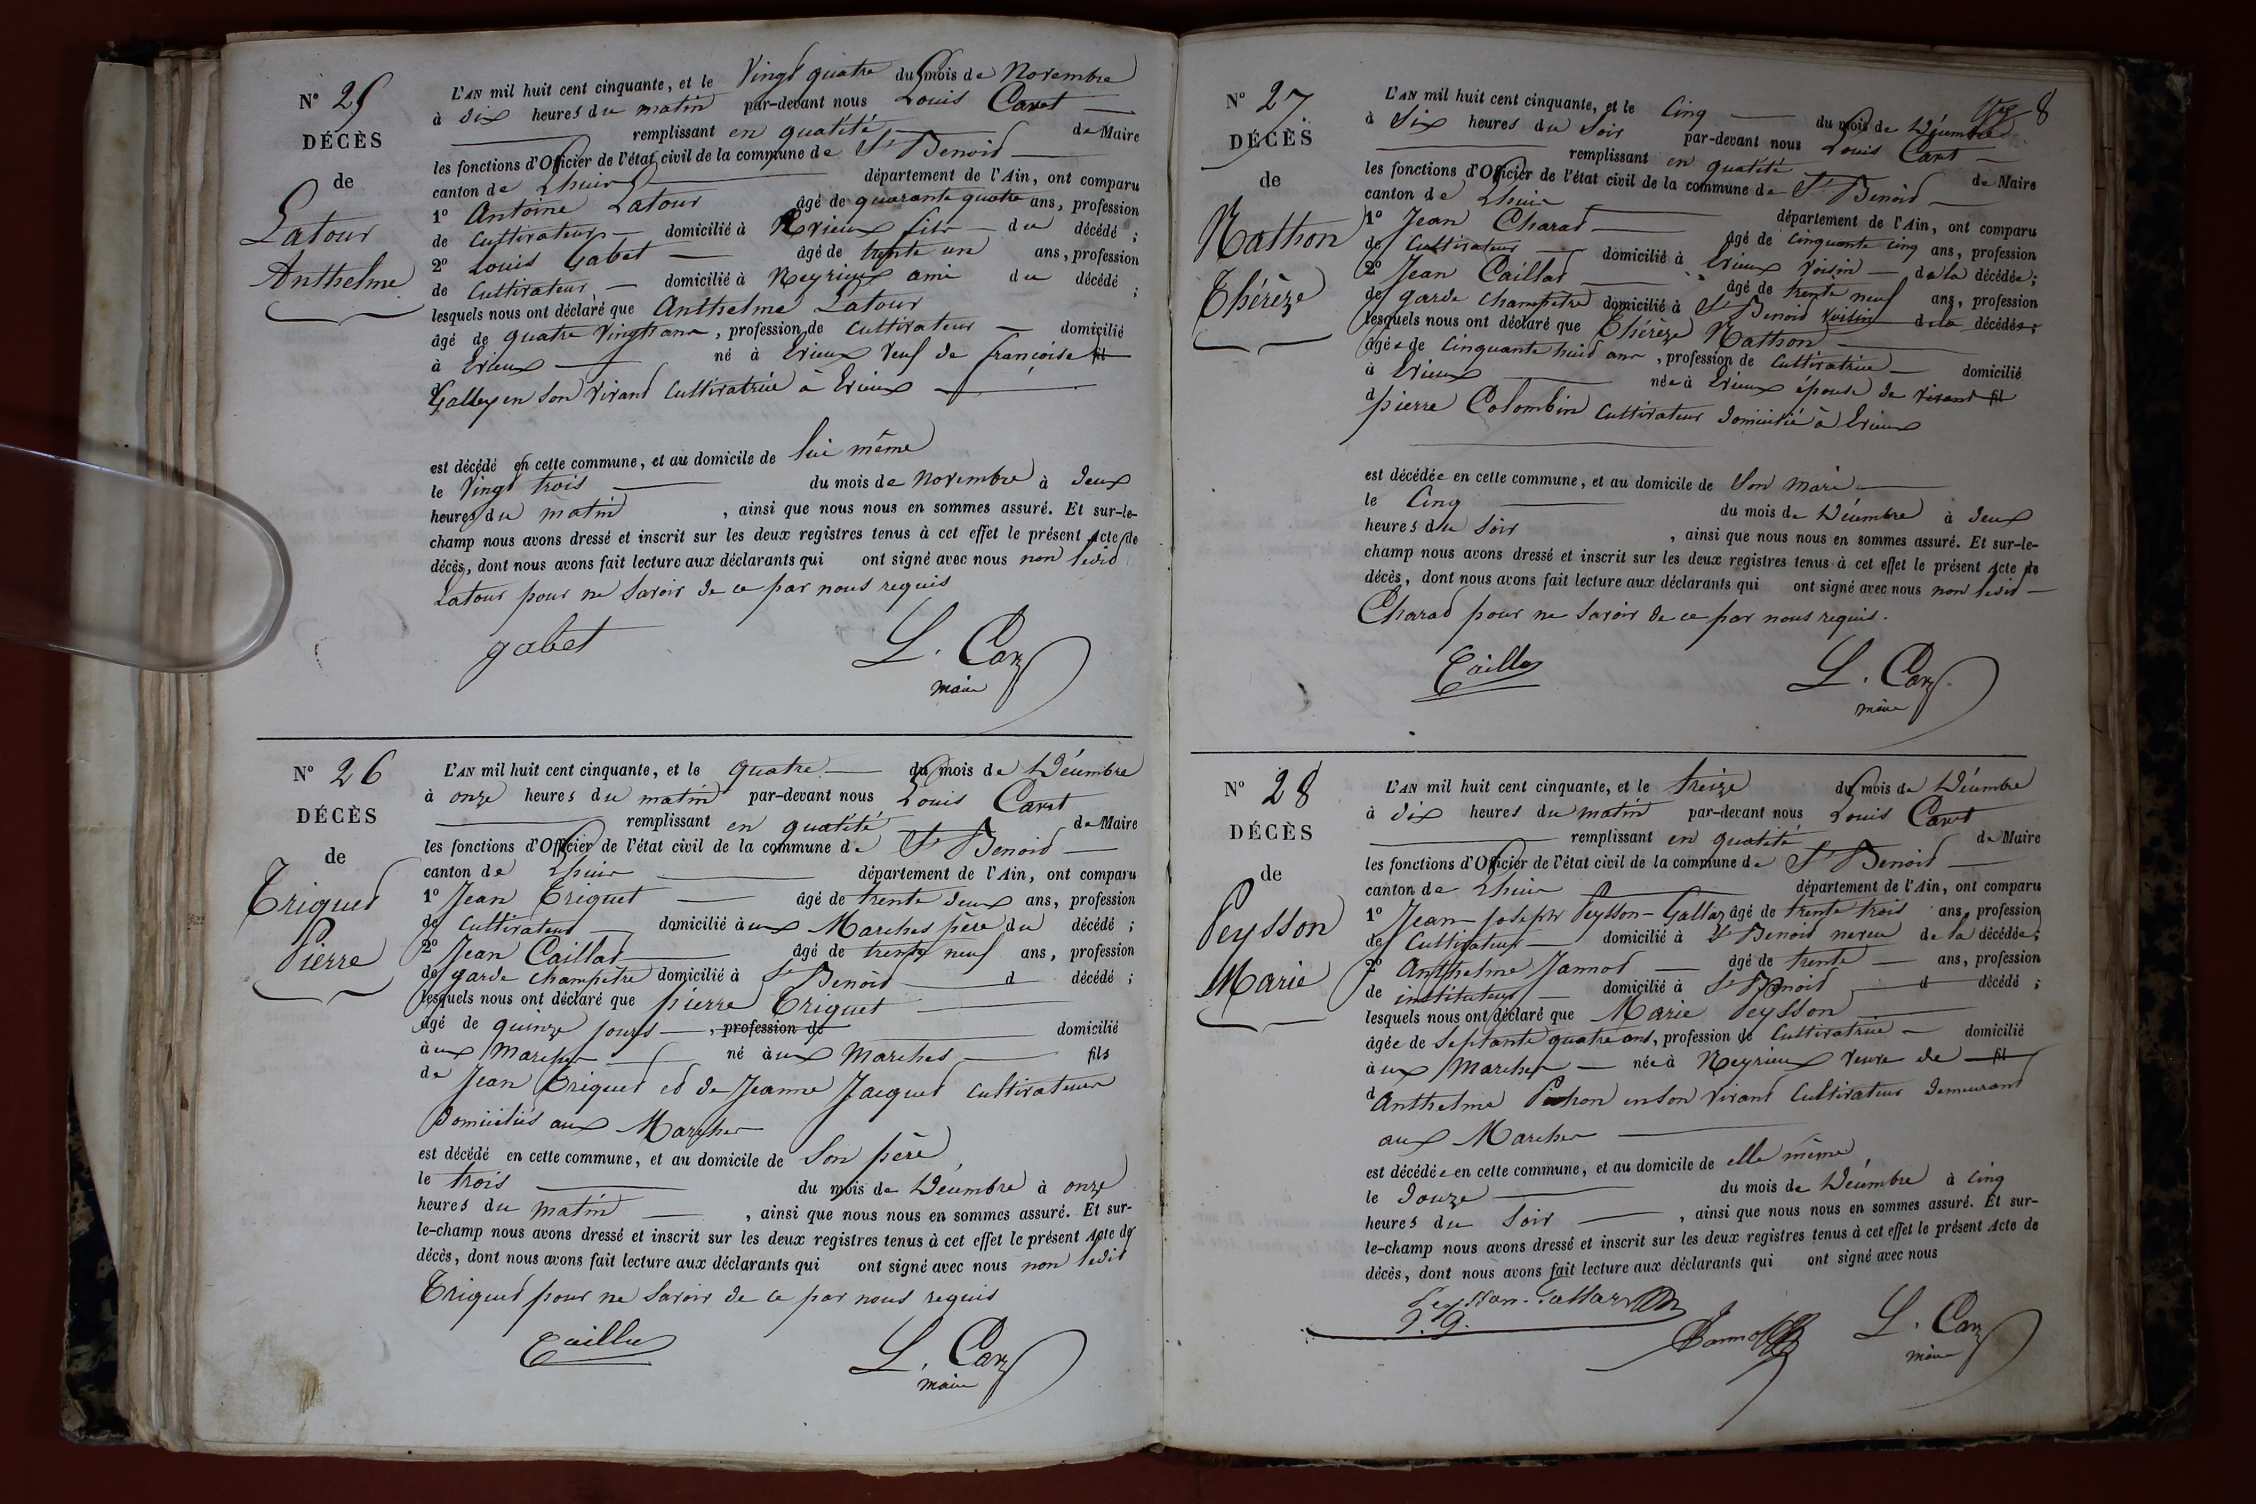 N° 25
DÉCÈS
de
Latour
Anthelme
L'AN mil huit cent cinquante, et le Vingt quatre du mois de Novembre
à dix heures du matin par-devant nous Louis Carret
remplissant en qualité de Maire
les fonctions d'Officier de l'état civil de la commune de St Benoid
canton de Lhuis département de l'Ain, ont comparu
1° Antoine Latour âgé de quarante quatre ans, profession
de Cultivateur domicilié à Evieux fils du décédé ;
2° Louis Gabet âgé de trente un ans, profession
de Cultivateur domicilié à Neyrieux ami du décédé ;
lesquels nous ont déclaré que Anthelme Latour
âgé de quatre Vingts ans, profession de Cultivateur domicilié
à Evieux né à Evieux Veuf de françoise fil
d Galley en son vivant Cultivatrice à Evieux
est décédé en cette commune, et au domicile de lui même
le Vingt trois du mois de Novembre à deux
heures du matin, ainsi que nous nous en sommes assuré. Et sur-le-
champ nous avons dressé et inscrit sur les deux registres tenus à cet effet le présent Acte de
décès, dont nous avons fait lecture aux déclarants qui ont signé avec nous non ledit
Latour pour ne savoir de ce par nous requis
gabet L. Carret
maire
N° 26
DÉCÈS
de
Triqued
Pierre
L'AN mil huit cent cinquante, et le quatre du mois de Décembre
à onze heures du matin par-devant nous Louis Carret
remplissant en qualité de Maire
les fonctions d'Officier de l'état civil de la commune de St Benoid
canton de Lhuis département de l'Ain, ont comparu
1° Jean Triquet âgé de trente deux ans, profession
de Cultivateur domicilié aux Marches père du décédé ;
2° Jean Caillat âgé de trente neuf ans, profession
de garde champetre domicilié à St Benoid d décédé ;
lesquels nous ont déclaré que pierre Triquet
âgé de quinze jours, profession de domicilié
aux Marches né aux Marches fils
de Jean Triqued et de Jeanne Jacqued Cultivateurs
Domiciliés aux Marches
est décédé en cette commune, et au domicile de Son père
le trois du mois de Décembre à onze
heures du matin, ainsi que nous nous en sommes assuré. Et sur-
le-champ nous avons dressé et inscrit sur les deux registres tenus à cet effet le présent Acte de
décès, dont nous avons fait lecture aux déclarants qui ont signé avec nous non ledit
Triqued pour ne savoir de ce par nous requis
Caillat L. Carret
maire
8
N° 27
DÉCÈS
de
Nathon
Thérèze
L'AN mil huit cent cinquante, et le Cinq du mois de Décembre
à Six heures du Soir par-devant nous Louis Carret
remplissant en qualité de Maire
les fonctions d'Officier de l'état civil de la commune de St Benoid
canton de Lhuis département de l'Ain, ont comparu
1° Jean Charad âgé de Cinquante cinq ans, profession
de Cultivateur domicilié à Evieux Voisin de la décédée ;
2° Jean Caillat âgé de trente neuf ans, profession
de garde champetre domicilié à St Benoid voisin de la décédée ;
lesquels nous ont déclaré que Thérèze Nathon
âgée de Cinquante huit ans, profession de Cultivatrice domicilié
à Evieux née à Evieux épouse de vivant fil
d pierre Colombin Cultivateur domicilié à Evieux
est décédée en cette commune, et au domicile de Son mari
le Cinq du mois de Décembre à deux
heures du Soir, ainsi que nous nous en sommes assuré. Et sur-le-
champ nous avons dressé et inscrit sur les deux registres tenus à cet effet le présent Acte de
décès, dont nous avons fait lecture aux déclarants qui ont signé avec nous non ledit
Charad pour ne savoir de ce par nous requis.
Caillat L. Carret
maire
N° 28
DÉCÈS
de
Peysson
Marie
L'AN mil huit cent cinquante, et le treize du mois de Décembre
à dix heures du matin par-devant nous Louis Carret
remplissant en qualité de Maire
les fonctions d'Officier de l'état civil de la commune de St Benoid
canton de Lhuis département de l'Ain, ont comparu
1° Jean Joseph Peysson-Gallaz âgé de trente trois ans, profession
de Cultivateur domicilié à St Benoid neveu de la décédée ;
2° Anthelme Jannot âgé de trente ans, profession
de instituteur domicilié à St Benoid d décédé ;
lesquels nous ont déclaré que Marie Peysson
âgée de Septante quatre ans, profession de Cultivatrice domicilié
aux Marches née à Neyrieux Veuve de fil
d Anthelme Pichon en son vivant Cultivateur demeurant
aux Marches
est décédée en cette commune, et au domicile de elle même
le douze du mois de Décembre à Cinq
heures du Soir, ainsi que nous nous en sommes assuré. Et sur-
le-champ nous avons dressé et inscrit sur les deux registres tenus à cet effet le présent Acte de
décès, dont nous avons fait lecture aux déclarants qui ont signé avec nous
Peysson-Gallaz
J. J.
Jannot L. Carret
maire